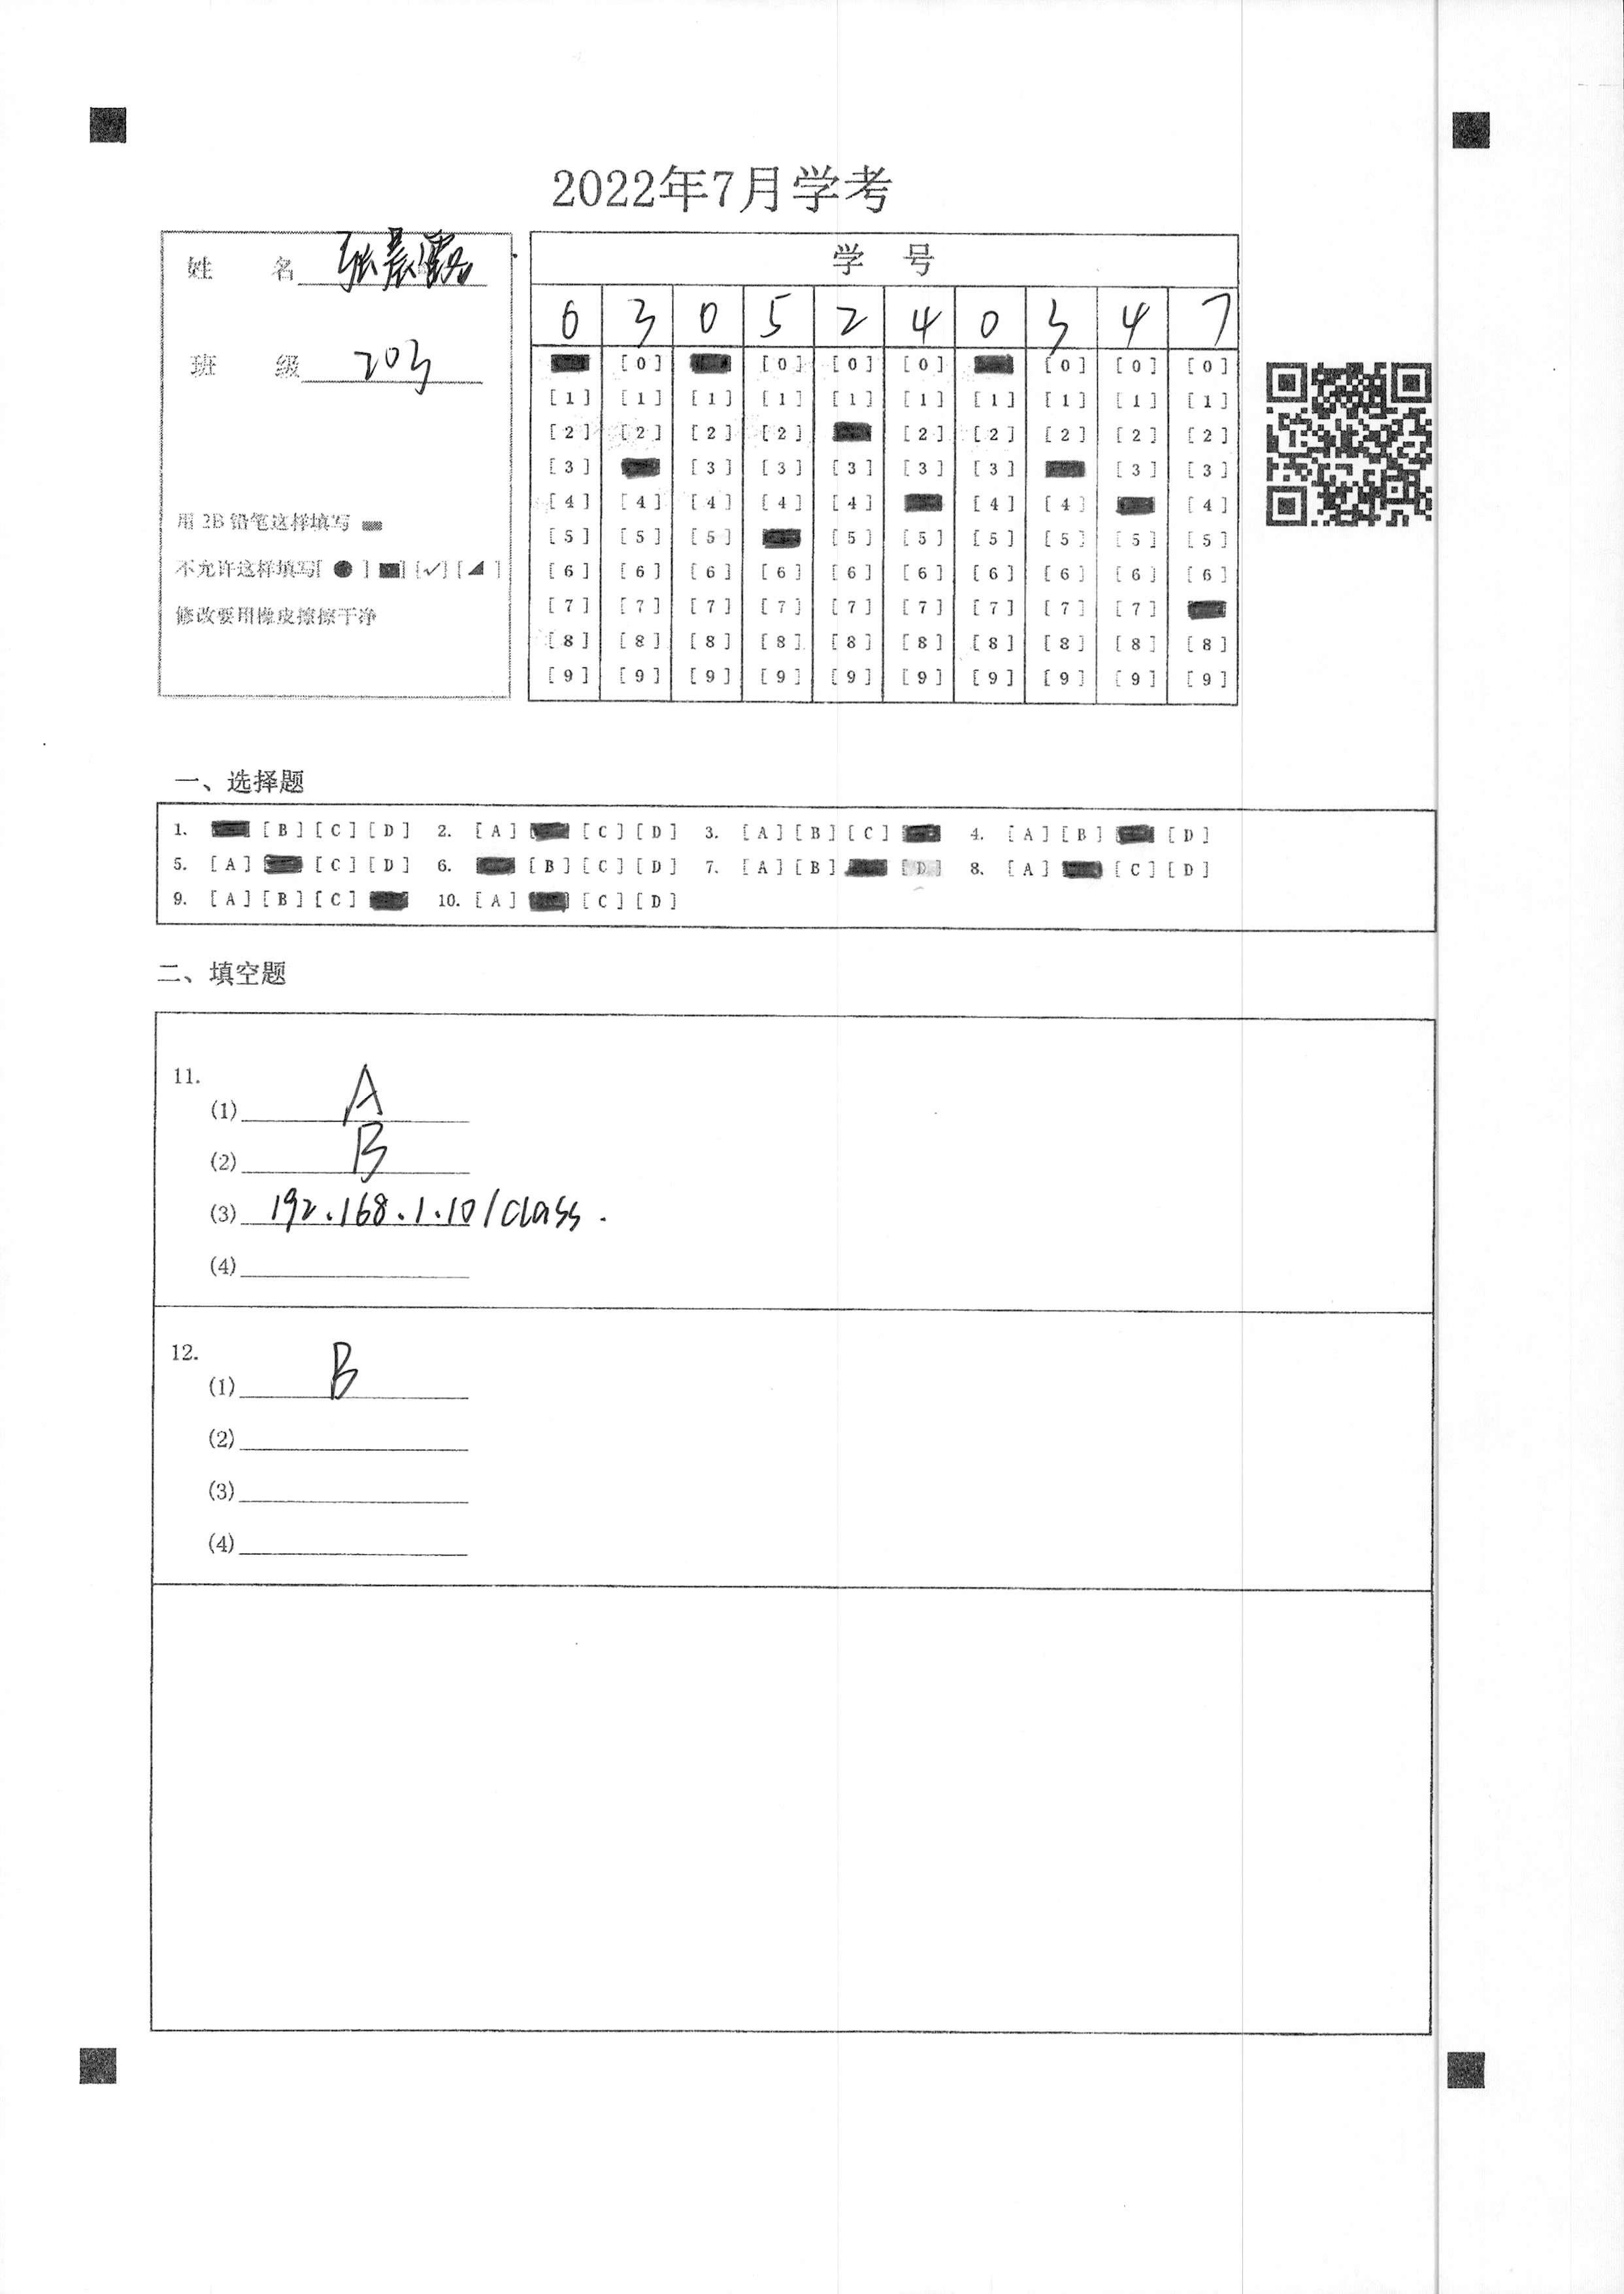 2022年7月学考
姓 名 张晨露
班 级 203
用 2B 铅笔这样填写
不允许这样填写[ ● ] [■] [✓] [◢ ]
修改要用橡皮擦擦干净
学 号
0 3 0 5 2 4 0 3 4 7
[0] [0] [0] [0] [0] [0] [0]
[1] [1] [1] [1] [1] [1] [1] [1] [1] [1]
[2] [2] [2] [2] [2] [2] [2] [2] [2]
[3] [3] [3] [3] [3] [3] [3] [3]
[4] [4] [4] [4] [4] [4] [4] [4]
[5] [5] [5] [5] [5] [5] [5] [5] [5]
[6] [6] [6] [6] [6] [6] [6] [6] [6] [6]
[7] [7] [7] [7] [7] [7] [7] [7] [7]
[8] [8] [8] [8] [8] [8] [8] [8] [8] [8]
[9] [9] [9] [9] [9] [9] [9] [9] [9] [9]
一、选择题
1. [B] [C] [D] 2. [A] [C] [D] 3. [A] [B] [C] 4. [A] [B] [D]
5. [A] [C] [D] 6. [B] [C] [D] 7. [A] [B] [D] 8. [A] [C] [D]
9. [A] [B] [C] 10. [A] [C] [D]
二、填空题
11.
(1) A
(2) B
(3) 192.168.1.10/class.
(4)
12.
(1) B
(2)
(3)
(4)